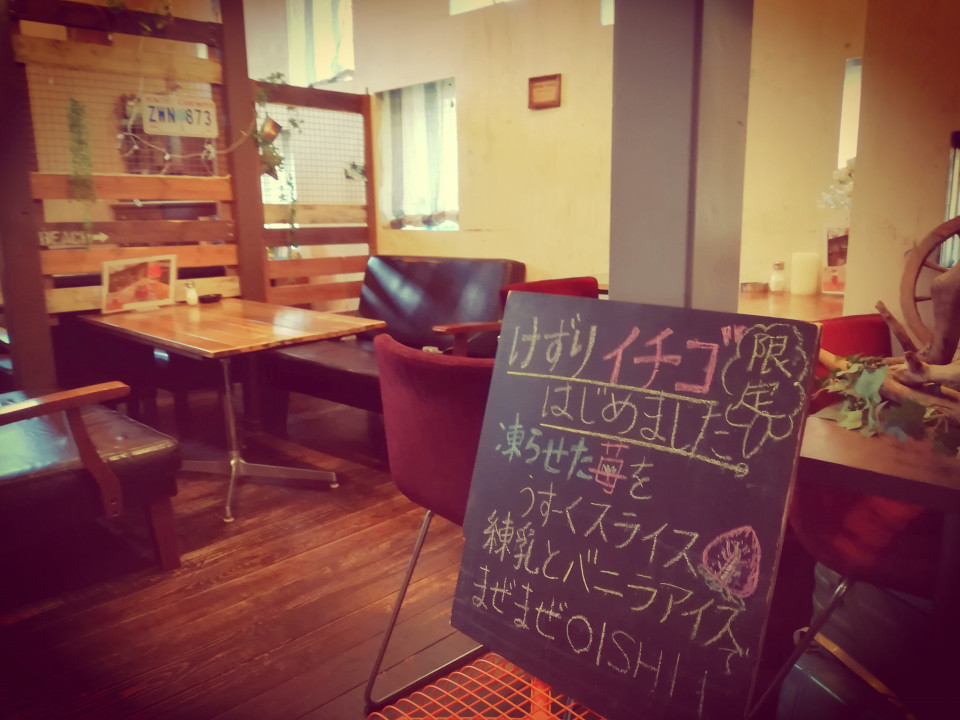 ZWN 873
BEACH→
けずりイチゴ
限定
はじめました。
凍らせた苺を
うすーくスライス
練乳とバニラアイスで
まぜまぜOISHI!